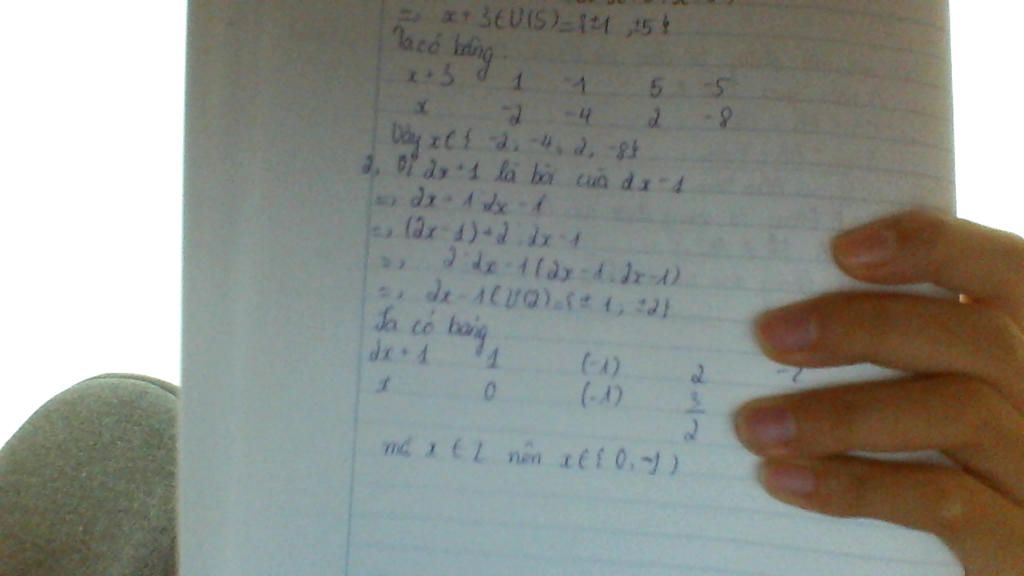 => x + 3 ∈ Ư(5) = {±1, ±5}
Ta có bảng:
x + 3 1 -1 5 -5
x -2 -4 2 -8
Vậy x ∈ { -2, -4, 2, -8}
2, Vì 2x + 1 là bội của 2x - 1
=> 2x + 1 ⋮ 2x - 1
=> (2x - 1) + 2 ⋮ 2x - 1
=> 2 ⋮ 2x - 1 (2x - 1 ⋮ 2x - 1)
=> 2x - 1 ∈ Ư(2) = {± 1, ±2}
Ta có bảng
2x + 1 1 (-1) 2 -2
x 0 (-1)
2
mà x ∈ Z nên x ∈ { 0, -1 }